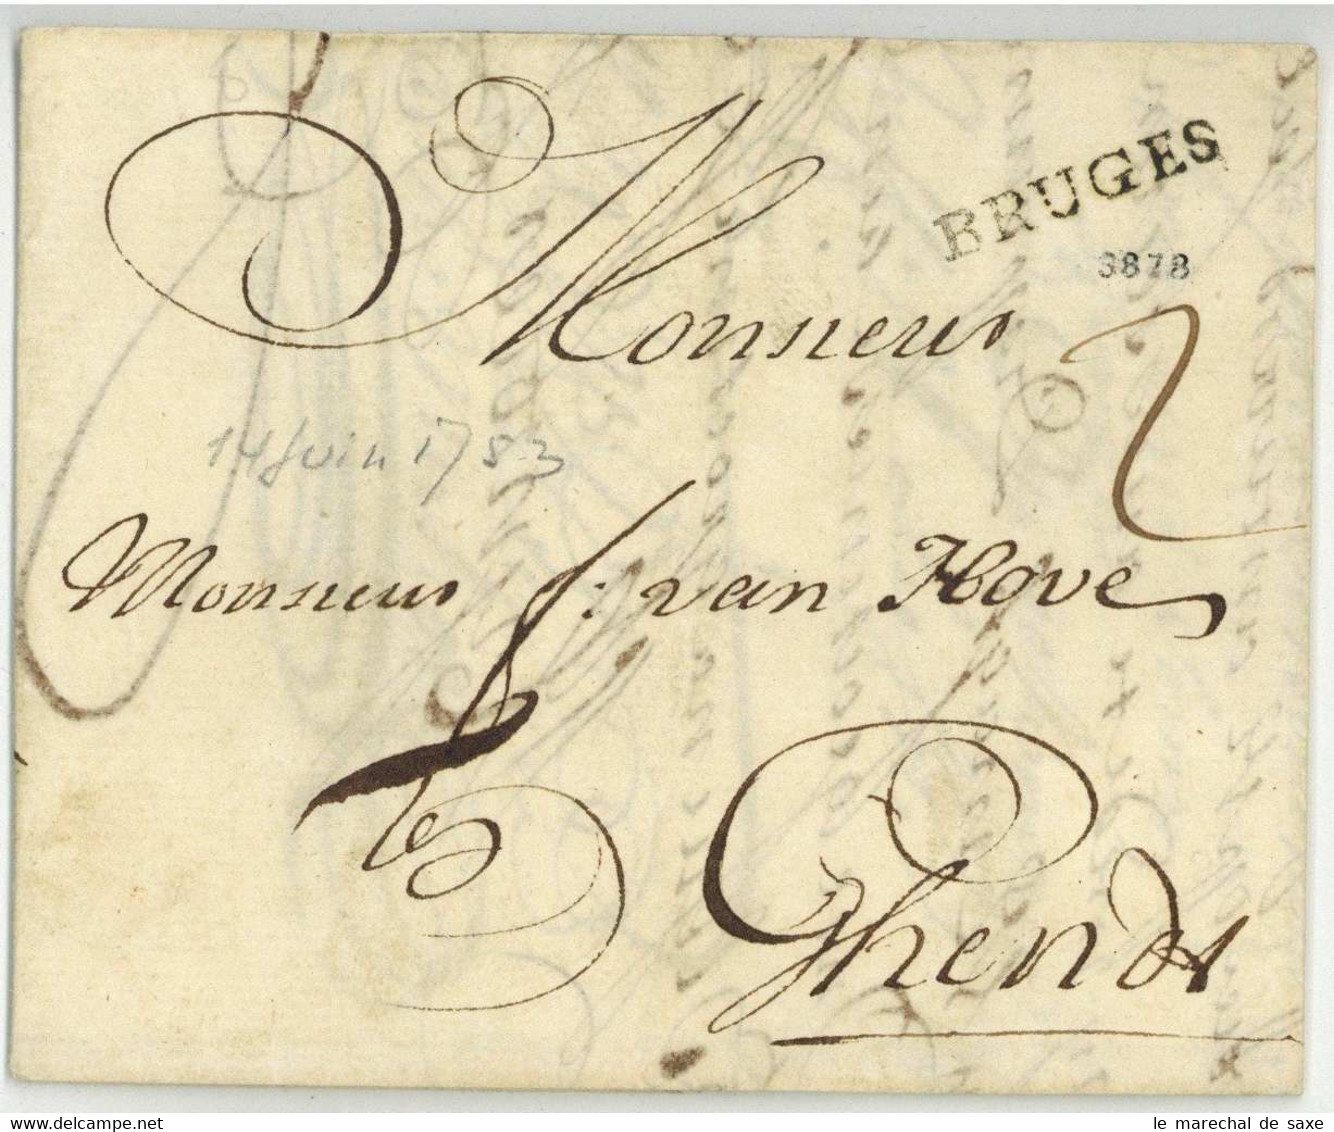 BRUGES
3878
Monsieur
2
14 Juin 1783
Monsieur f: van Hove
à
Ghendt
www.delcampe.net
le marechal de saxe